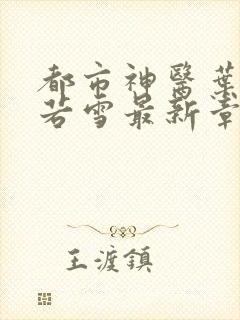 都市神醫葉
若雪最新章
王渡鎮